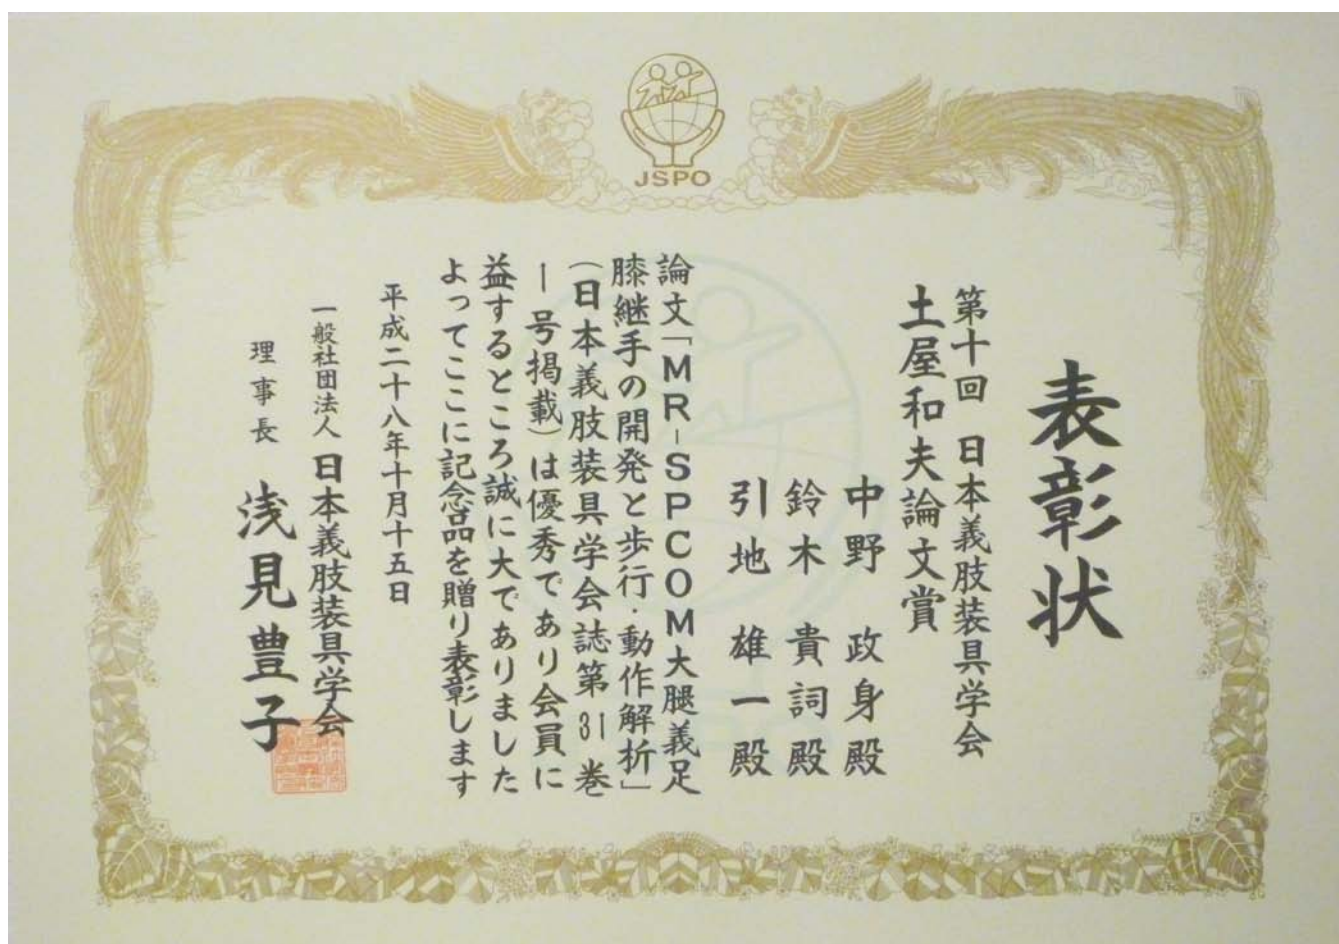 JSPO
表彰状
第十回 日本義肢装具学会
土屋和夫論文賞
中野 政身殿
鈴木 貴詞殿
引地 雄一殿
論文「MR-SPCOM大腿義足
膝継手の開発と歩行・動作解析」
(日本義肢装具学会誌第31巻
1号掲載)は優秀であり会員に
益するところ誠に大でありました
よってここに記念品を贈り表彰します
平成二十八年十月十五日
一般社団法人 日本義肢装具学会
理事長 浅見豊子